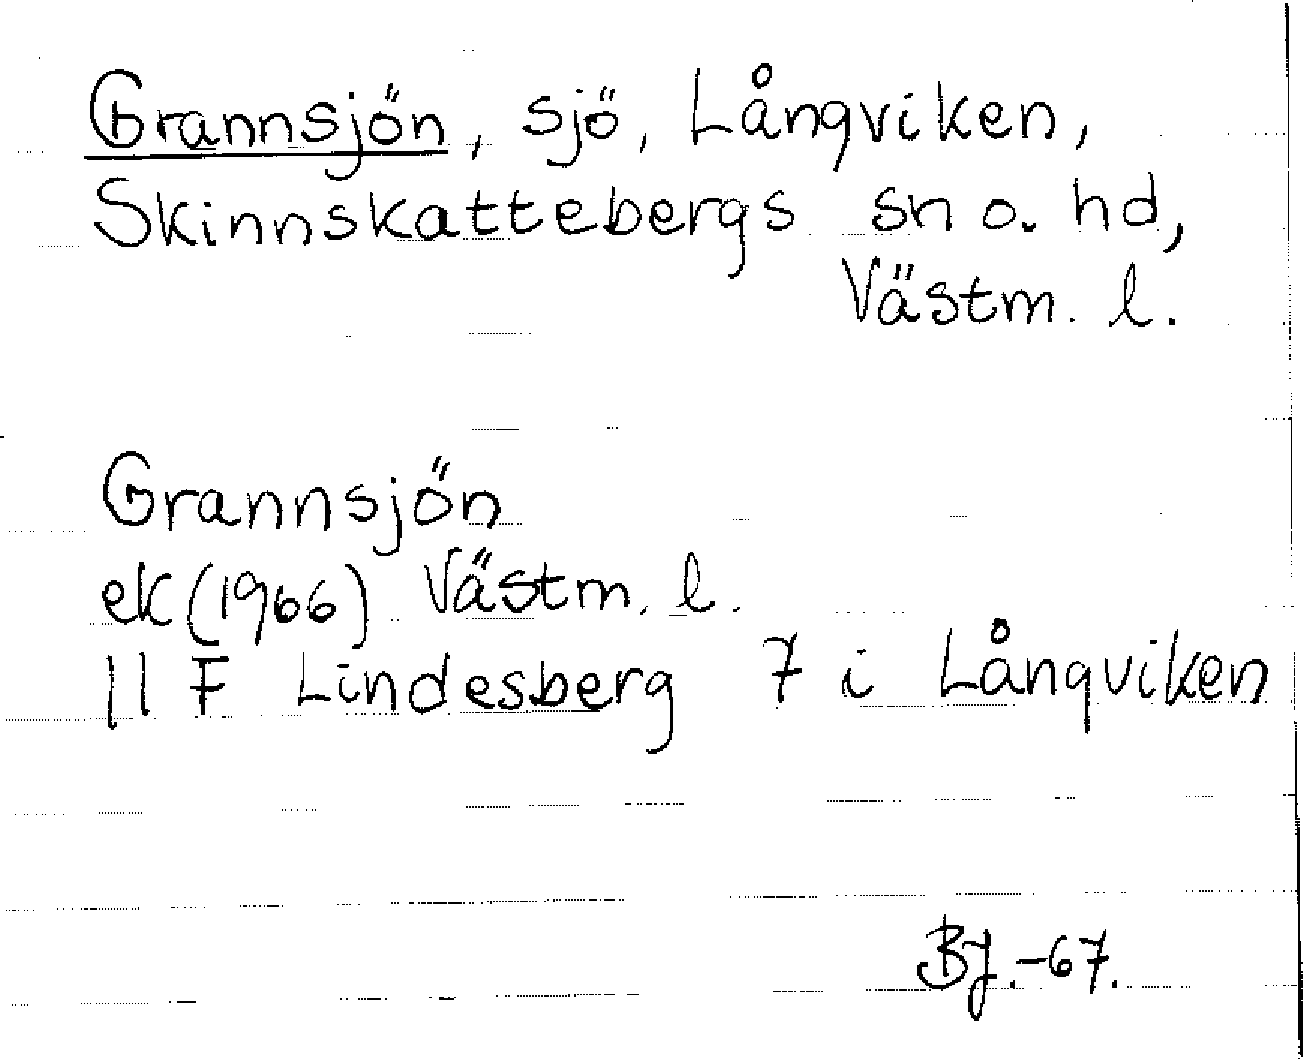 Grannsjön, sjö, Långviken,
Skinnskattebergs sn o. hd,
Västm. l.
Grannsjön
ek (1966) Västm. l.
11 F Lindesberg 7 i Långviken
BJ.-67.